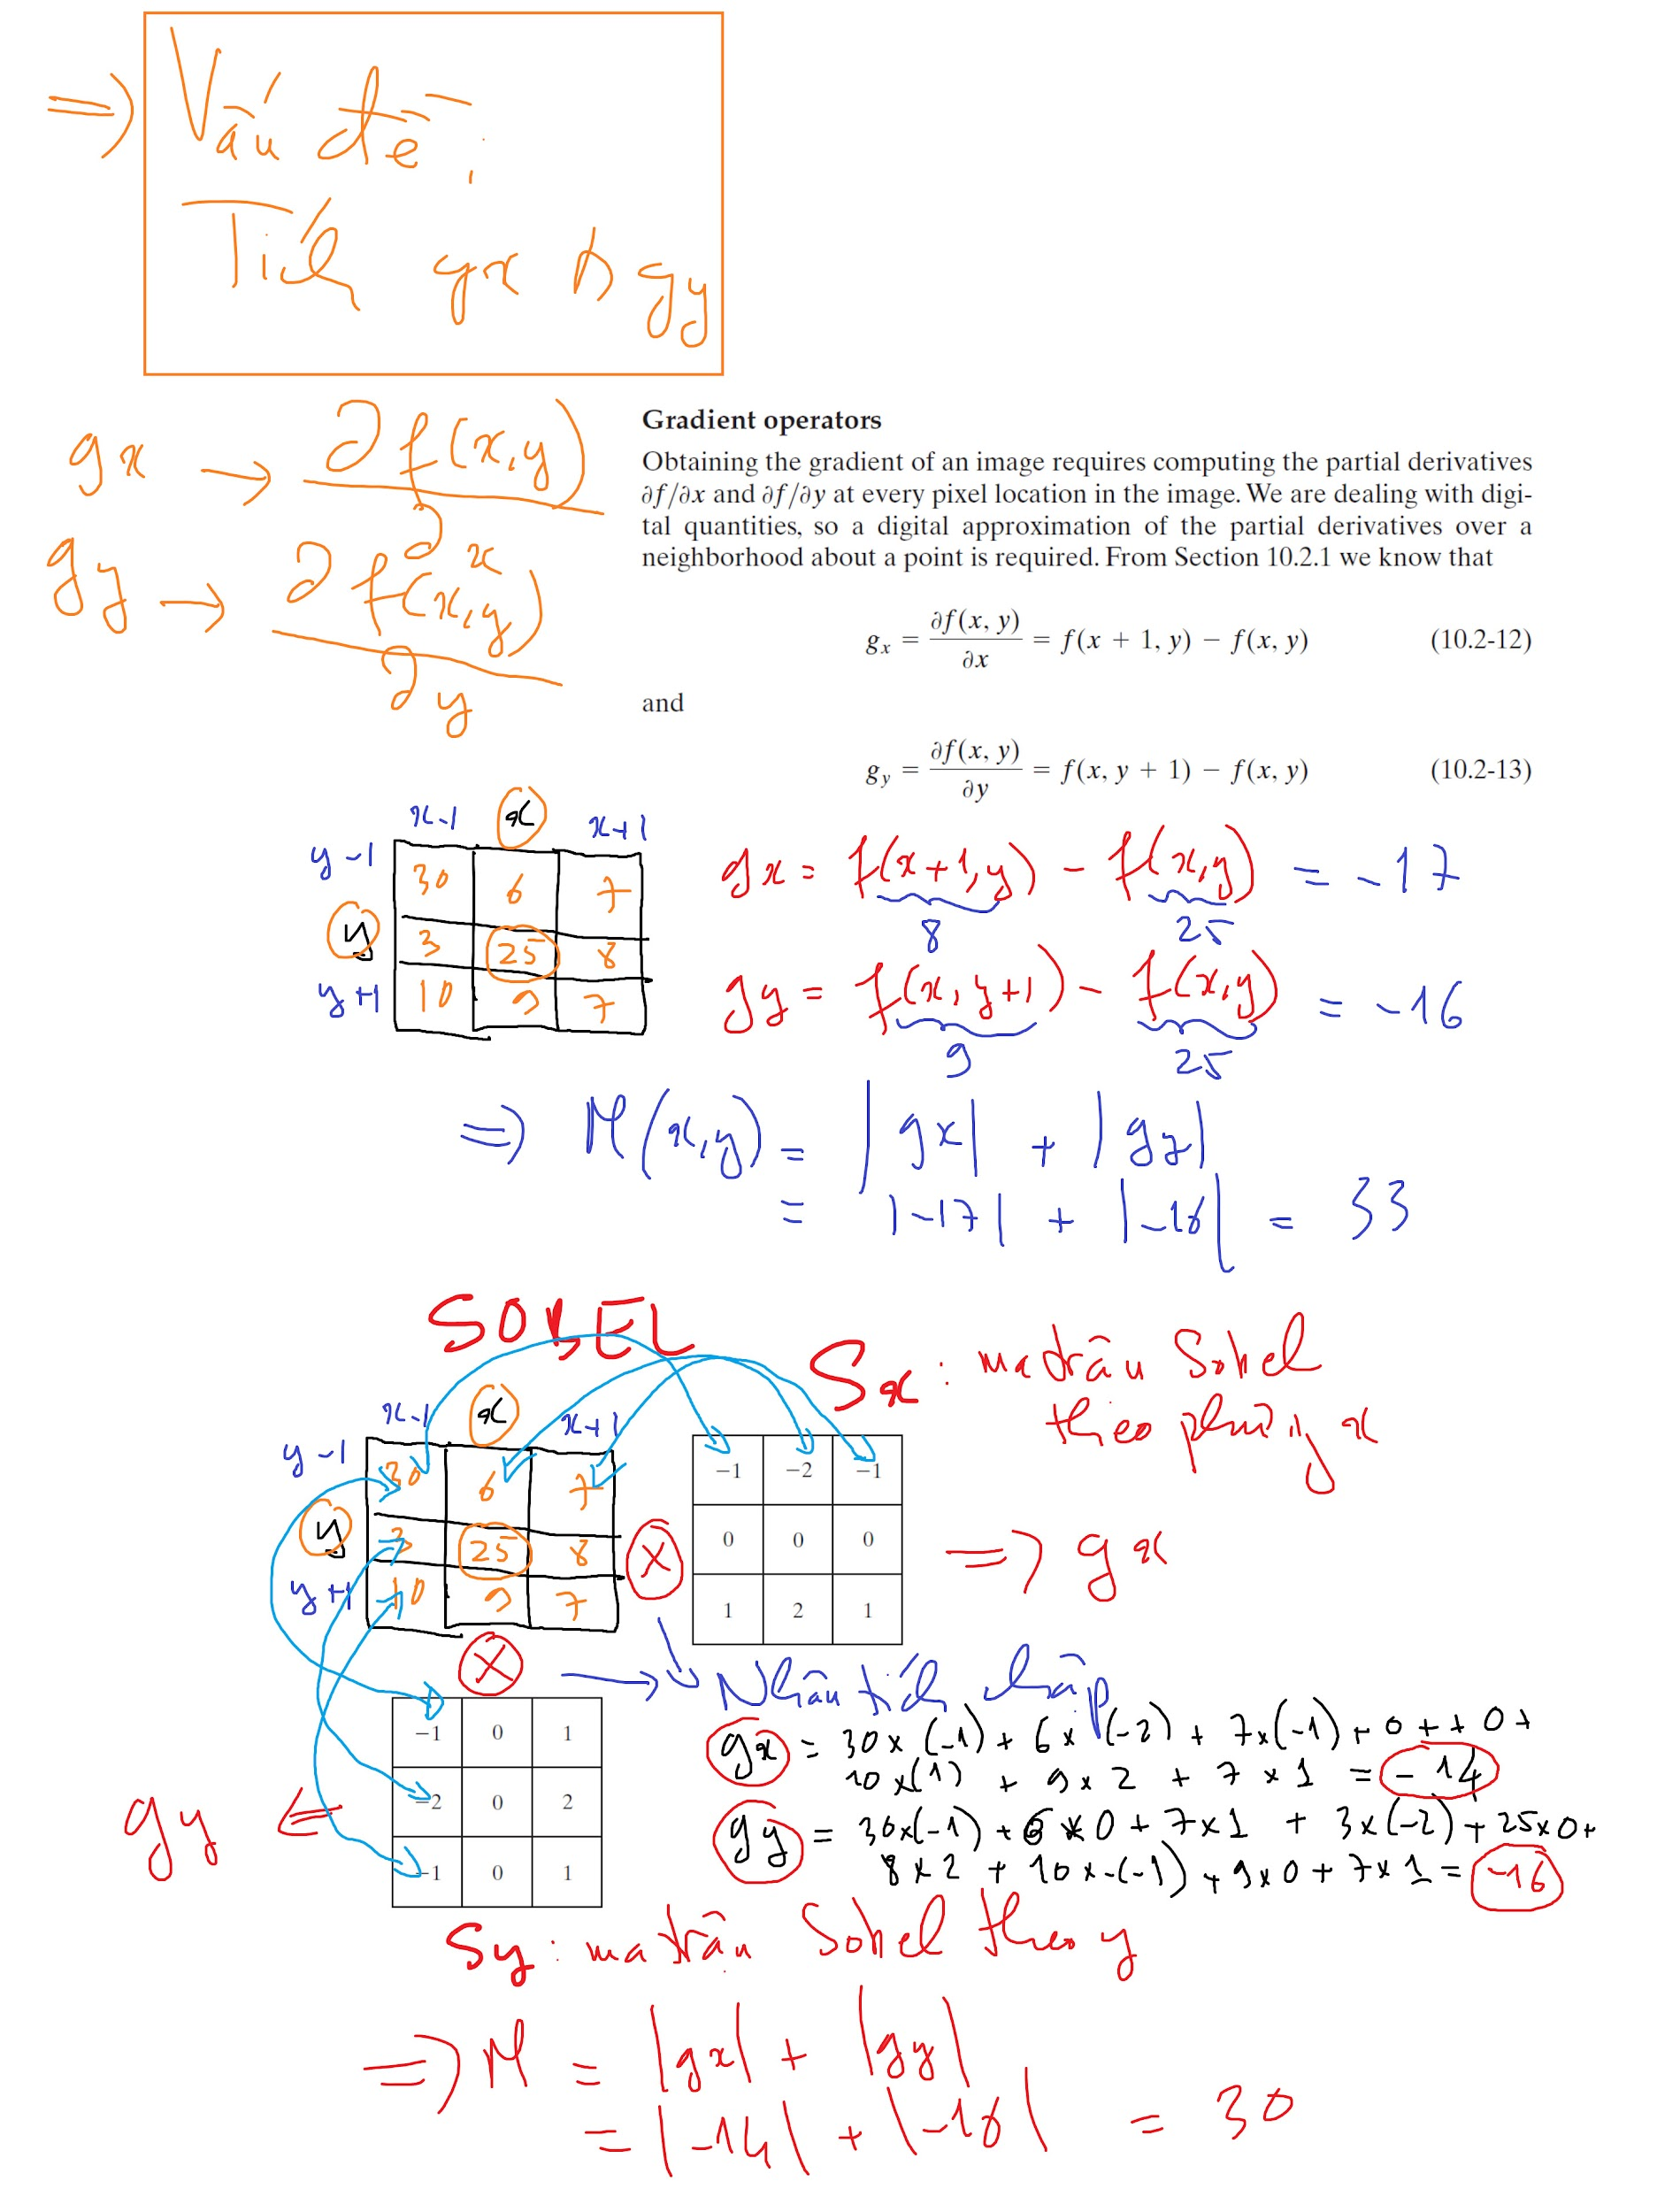 => Vấn đề:
Tính gx & gy
gx → ∂f(x,y)/∂x
gy → ∂f(x,y)/∂y
Gradient operators
Obtaining the gradient of an image requires computing the partial derivatives
∂f/∂x and ∂f/∂y at every pixel location in the image. We are dealing with digi-
tal quantities, so a digital approximation of the partial derivatives over a
neighborhood about a point is required. From Section 10.2.1 we know that
gx = ∂f(x, y)/∂x = f(x + 1, y) − f(x, y) (10.2-12)
and
gy = ∂f(x, y)/∂y = f(x, y + 1) − f(x, y) (10.2-13)
x-1 x x+1
y-1 30 6 7
y 3 25 8
y+1 10 9 7
gx = f(x+1,y) - f(x,y) = -17
8 25
gy = f(x,y+1) - f(x,y) = -16
9 25
=> M(x,y) = |gx| + |gy|
= |-17| + |-16| = 33
SOBEL
Sx: ma trận Sobel
theo phương x
x-1 x x+1
y-1 30 6 7
y 3 25 8
y+1 10 9 7
X
−1 −2 −1
0 0 0
1 2 1
=> gx
X
Nhân tích chập
−1 0 1
−2 0 2
−1 0 1
gy <=
gx = 30x(-1) + 6x(-2) + 7x(-1) + 0 + + 0 +
10x(1) + 9x2 + 7x1 = -14
gy = 30x(-1) + 6x0 + 7x1 + 3x(-2) + 25x0+
8x2 + 10x-(-1) + 9x0 + 7x1 = -16
Sy: ma trận Sobel theo y
=> M = |gx| + |gy|
= |-14| + |-16| = 30